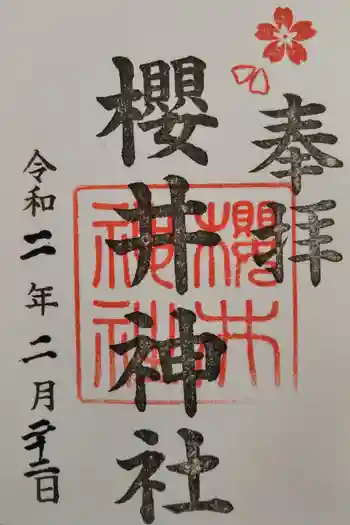 奉拝
櫻井神社
櫻井
神社
令和二年二月二十二日